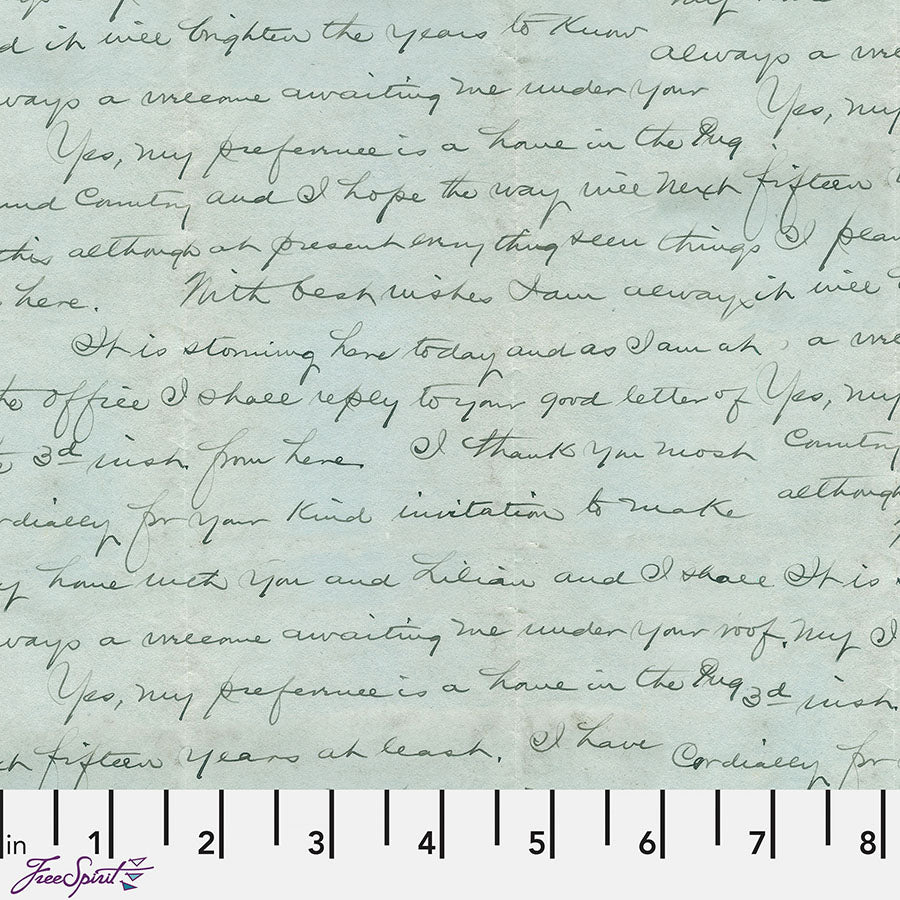 my
d it will brighten the years to know
always a
ways a welcome awaiting me under your
Yes, my
Yes, my preference is a home in the Pug
und Country and I hope the way will next fifteen
this although at present everything seem things I plan
here. With best wishes I am always it will
It is storming here today and as I am at, a
the office I shall reply to your good letter of Yes, my
3d inst. from here I thank you most Country
rdially for your kind invitation to make although
y home with you and Lilian and I shall It is
ways a welcome awaiting me under your roof. my I
Yes, my preference is a home in the Pug 3d inst.
xt fifteen years at least. I have Cordially for
in 1 2 3 4 5 6 7 8
FreeSpirit